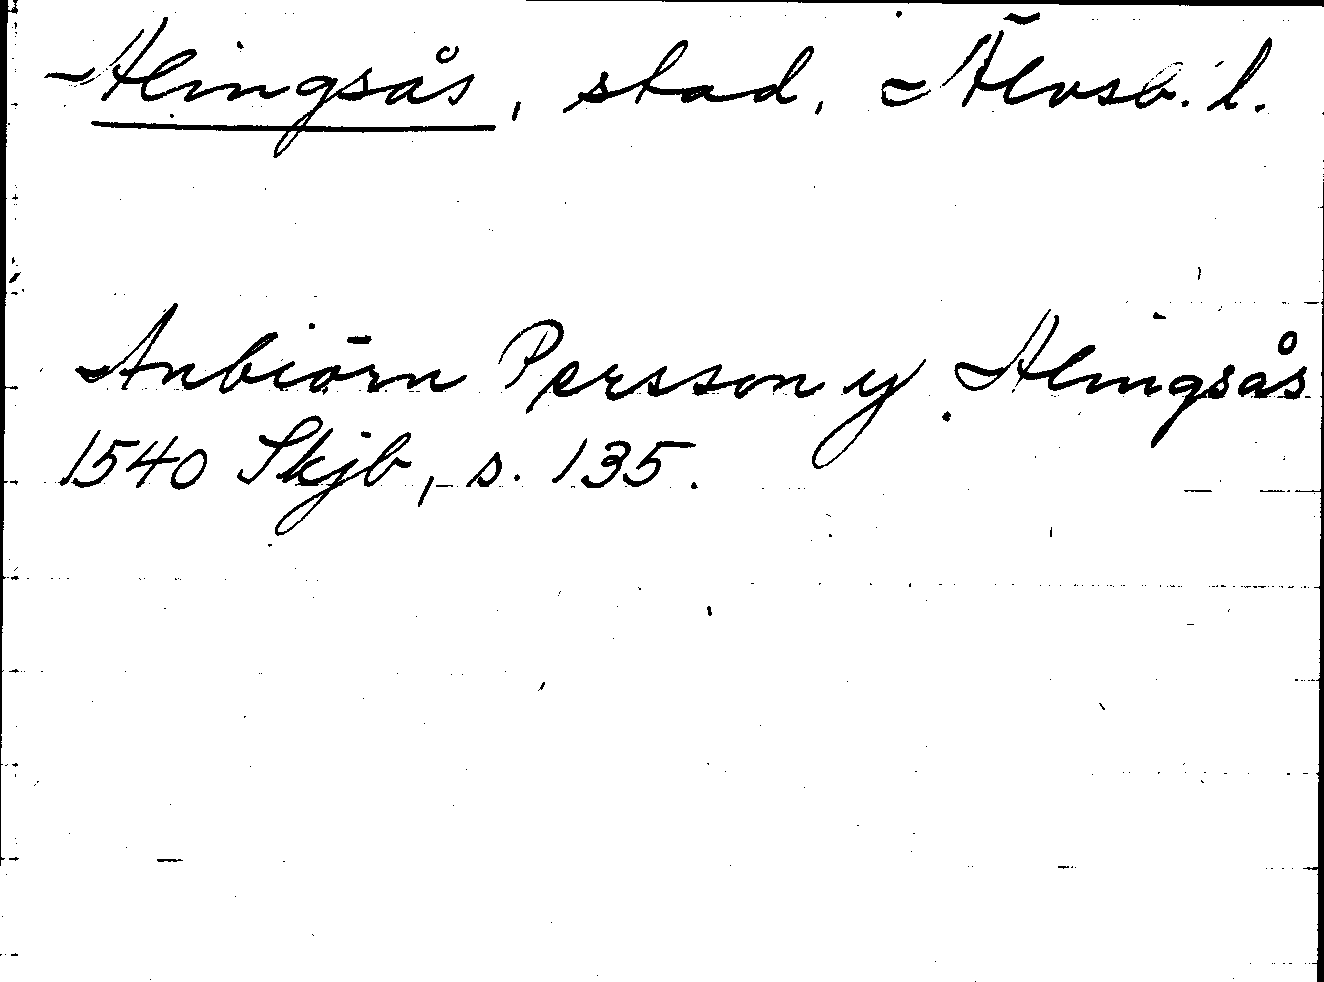 Alingsås, stad, Älvsb. l.
Anbiörn Persson y Alingsås
1540 Skjb, s. 135.